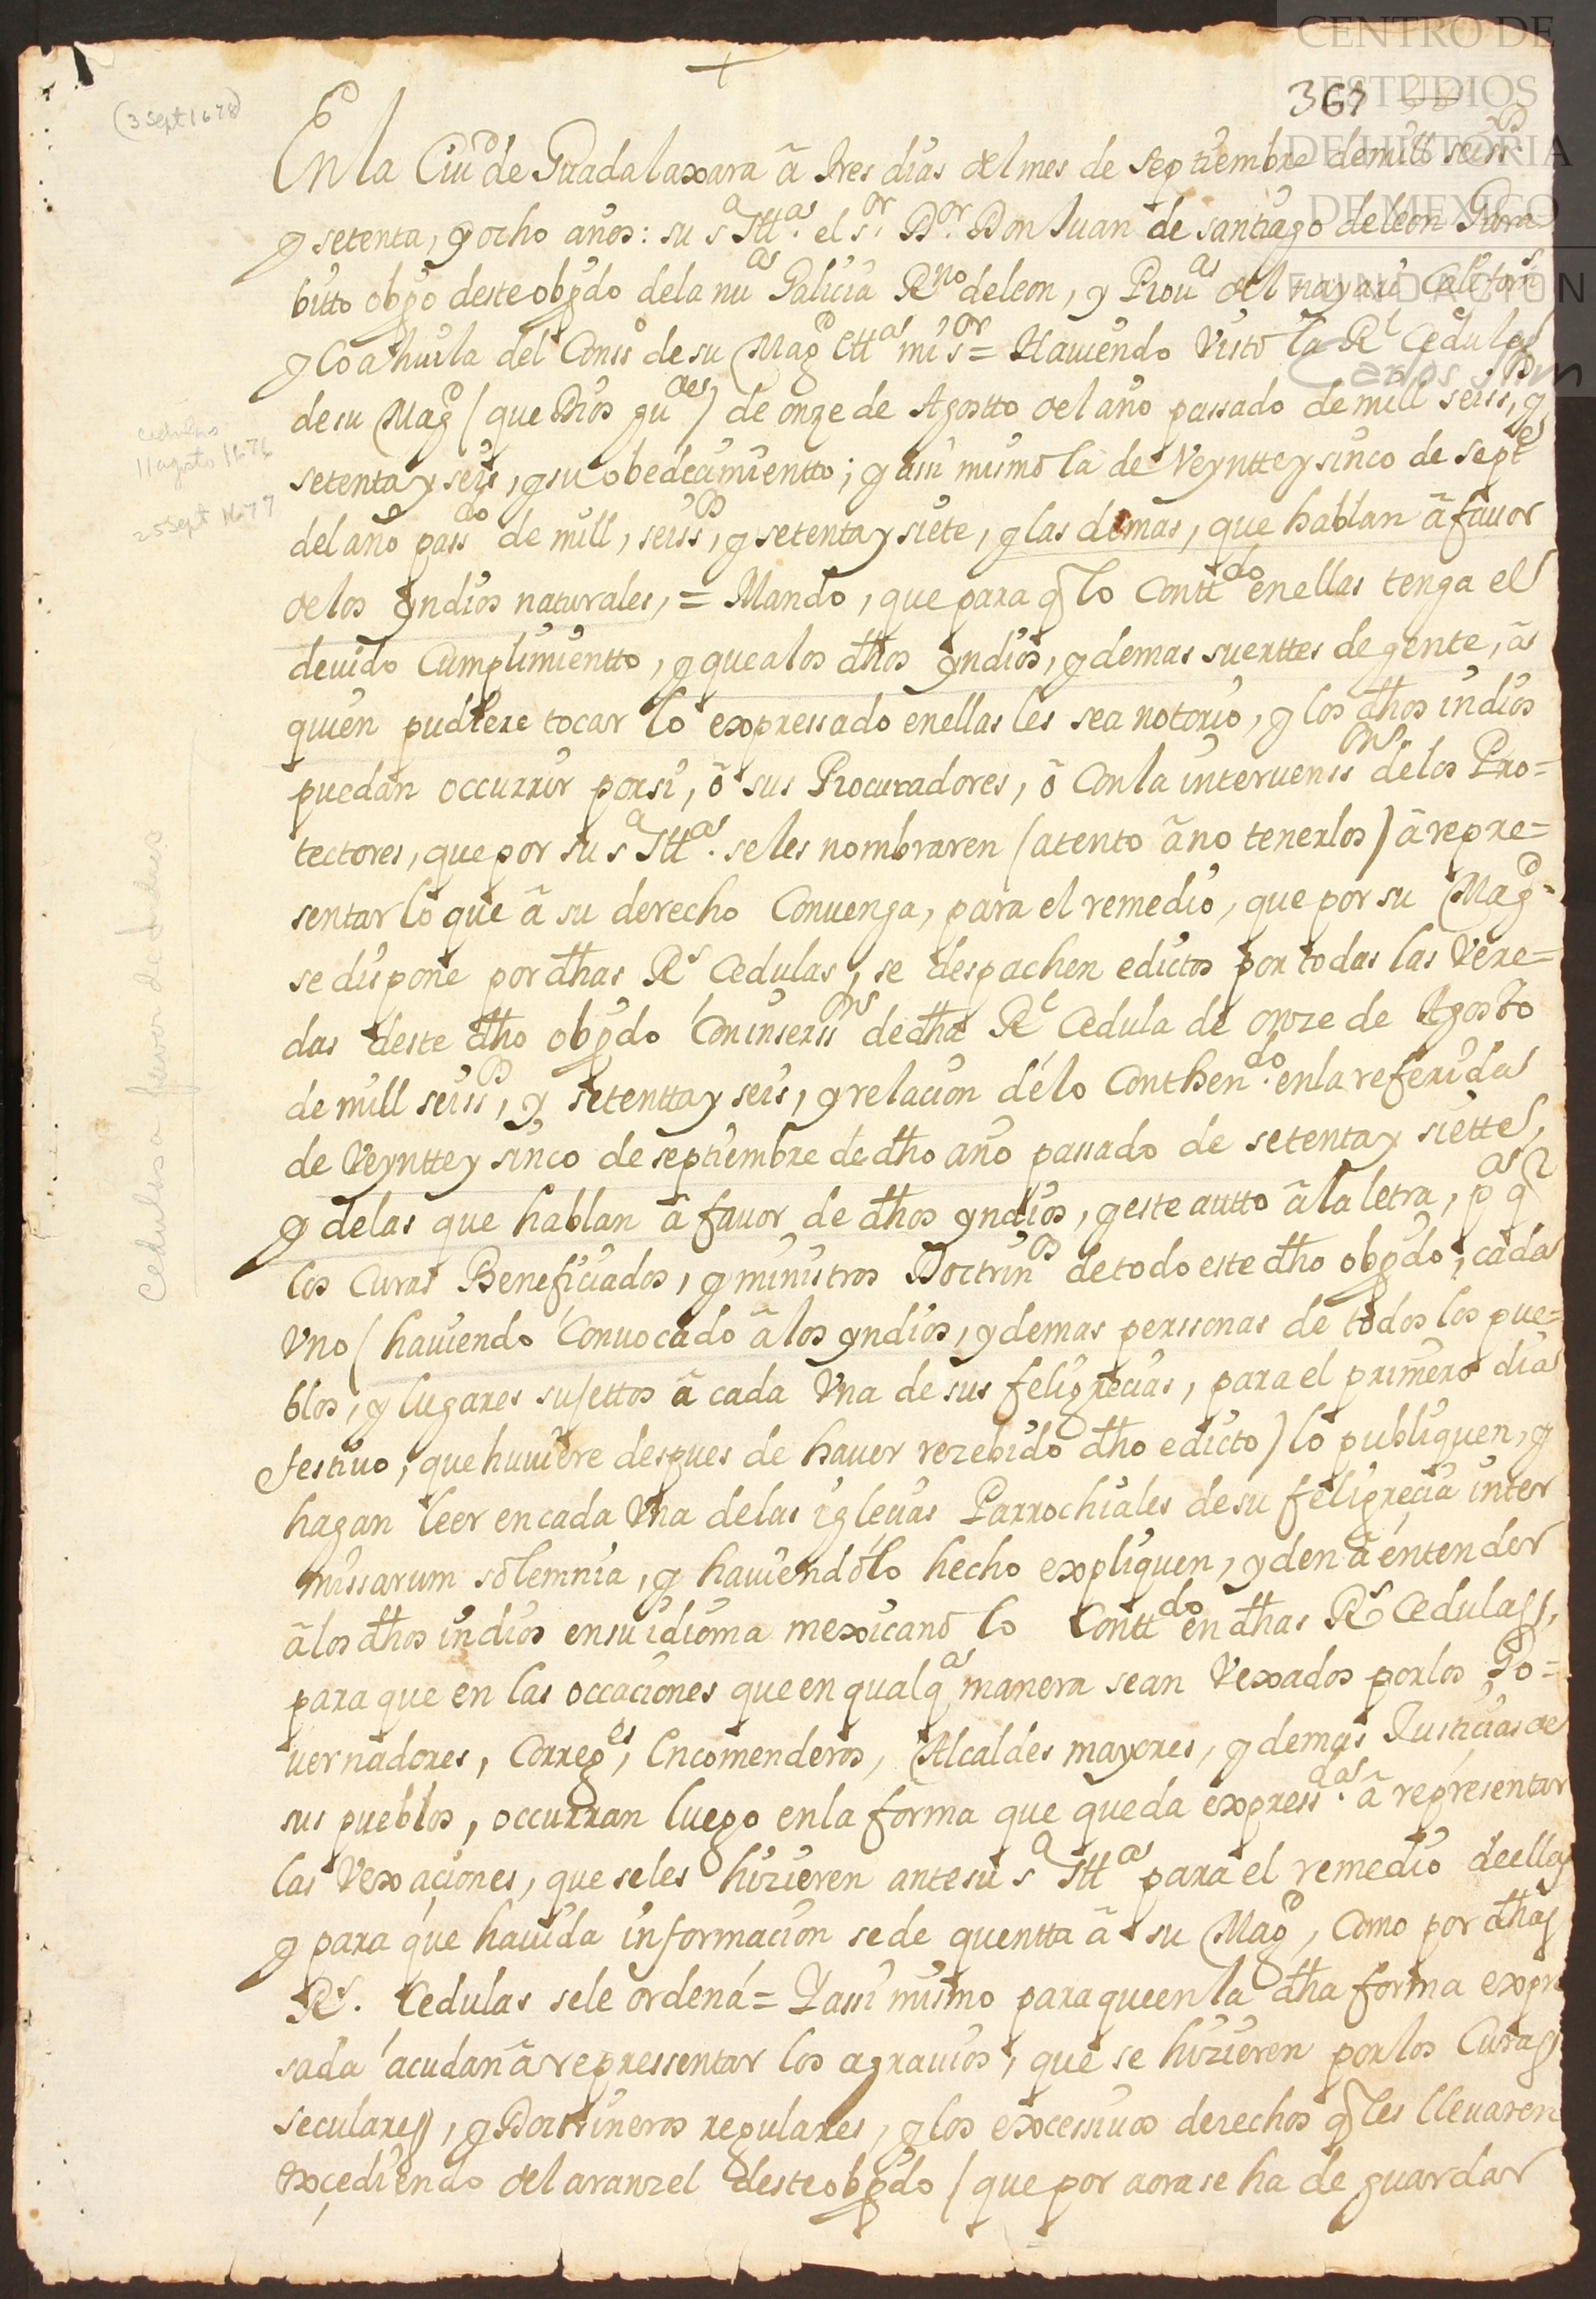 CENTRO DE
ESTUDIOS
DE HISTORIA
DE MEXICO
FUNDACIÓN
Carlos Slim
367
(3 Sept 1678)
En la Ciud de Guadalaxara â tres dias del mes de septiembre de mill seissos
y setenta, y ocho años: su sa Illas. el sor. Dor. Don Juan de santiago de leon Gara=
bitto obpo deste obpdo de la nua Galicia Rno de leon, y Prouas del nayari Califors
y Coahuila del Conso de su Magd etta mi sor = Hauiendo visto la Rl Cedula
de su Magd (que Dios gude) de onze de Agostto del año passado de mill seissos, y
setenta y seis, y su obedecimientto; y assi mismo la de Veyntte y sinco de septe
del año passdo de mill, seissos, y setenta y siete, y las demas, que hablan â fauor
de los yndios naturales, = Mando, que para q lo Conttdo en ellas tenga el
deuido Cumplimientto, y que a los dhos yndios, y demas suerttes de gente, â
quien pudiere tocar lo expressado en ellas les sea notorio, y los dhos indios
puedan occurrir por si, ô sus Procuradores, ô Con la interuensson de los Pro=
tectores, que por su sa Illa. se les nombraren (atento â no tenerlos) â repre=
sentar lo que â su derecho Conuenga, para el remedio, que por su Magd.
se dispone por dhas Rs Cedulas, se despachen edictos por todas las Vere=
das deste dho obpdo Con inserson de dha Rl Cedula de onze de Agosto
de mill seissos, y setentta y seis, y relacion de lo Conthendo. en la referida
de Veyntte y sinco de septiembre de dho año passado de setenta y siette,
y de las que hablan â fauor de dhos yndios, y este autto â la letra, pa q
los Curas Beneficiados, y ministros Doctrinos de todo este dho obpdo, cada
Vno (hauiendo Conuocado â los yndios, y demas perssonas de todos los pue=
blos, y lugares sujettos â cada Vna de sus feligrecias, para el primero dia
festiuo, que huuiere despues de hauer rezebido dho edicto) lo publiquen, y
hagan leer en cada Vna de las iglecias Parrochiales de su feligrecia inter
missarum solemnia, y hauiendolo hecho expliquen, y den â entender
â los dhos indios en su idioma mexicano lo Conttdo en dhas Rs Cedulas,
para que en las occaciones que en qualqa manera sean Vexados por los Go=
uernadores, Correges, Encomenderos, Alcaldes mayores, y demas Justicias de
sus pueblos, occurran luego en la forma que queda expressda. â representar
las Vexaciones, que se les hizieren ante su sa Illa para el remedio de ellas
y para que hauida informacion se de quentta â su Magd, Como por dhas
Rs. Cedulas se le ordena = Y assi mismo para que en la dha forma expre
sada acudan â repressentar los agrauios, que se hizieren por los Curas
seculares, y Doctrineros regulares, y los excessiuos derechos q les lleuaren
excediendo del aranzel deste obpdo (que por aora se ha de guardar
cedulas
11 agosto 1676
25 Sept 1677
Cedulas a favor de indios